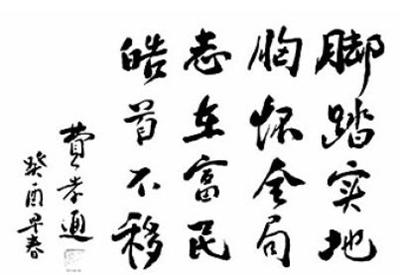 脚踏实地
胸怀全局
志在富民
皓首不移
費孝通
癸酉早春